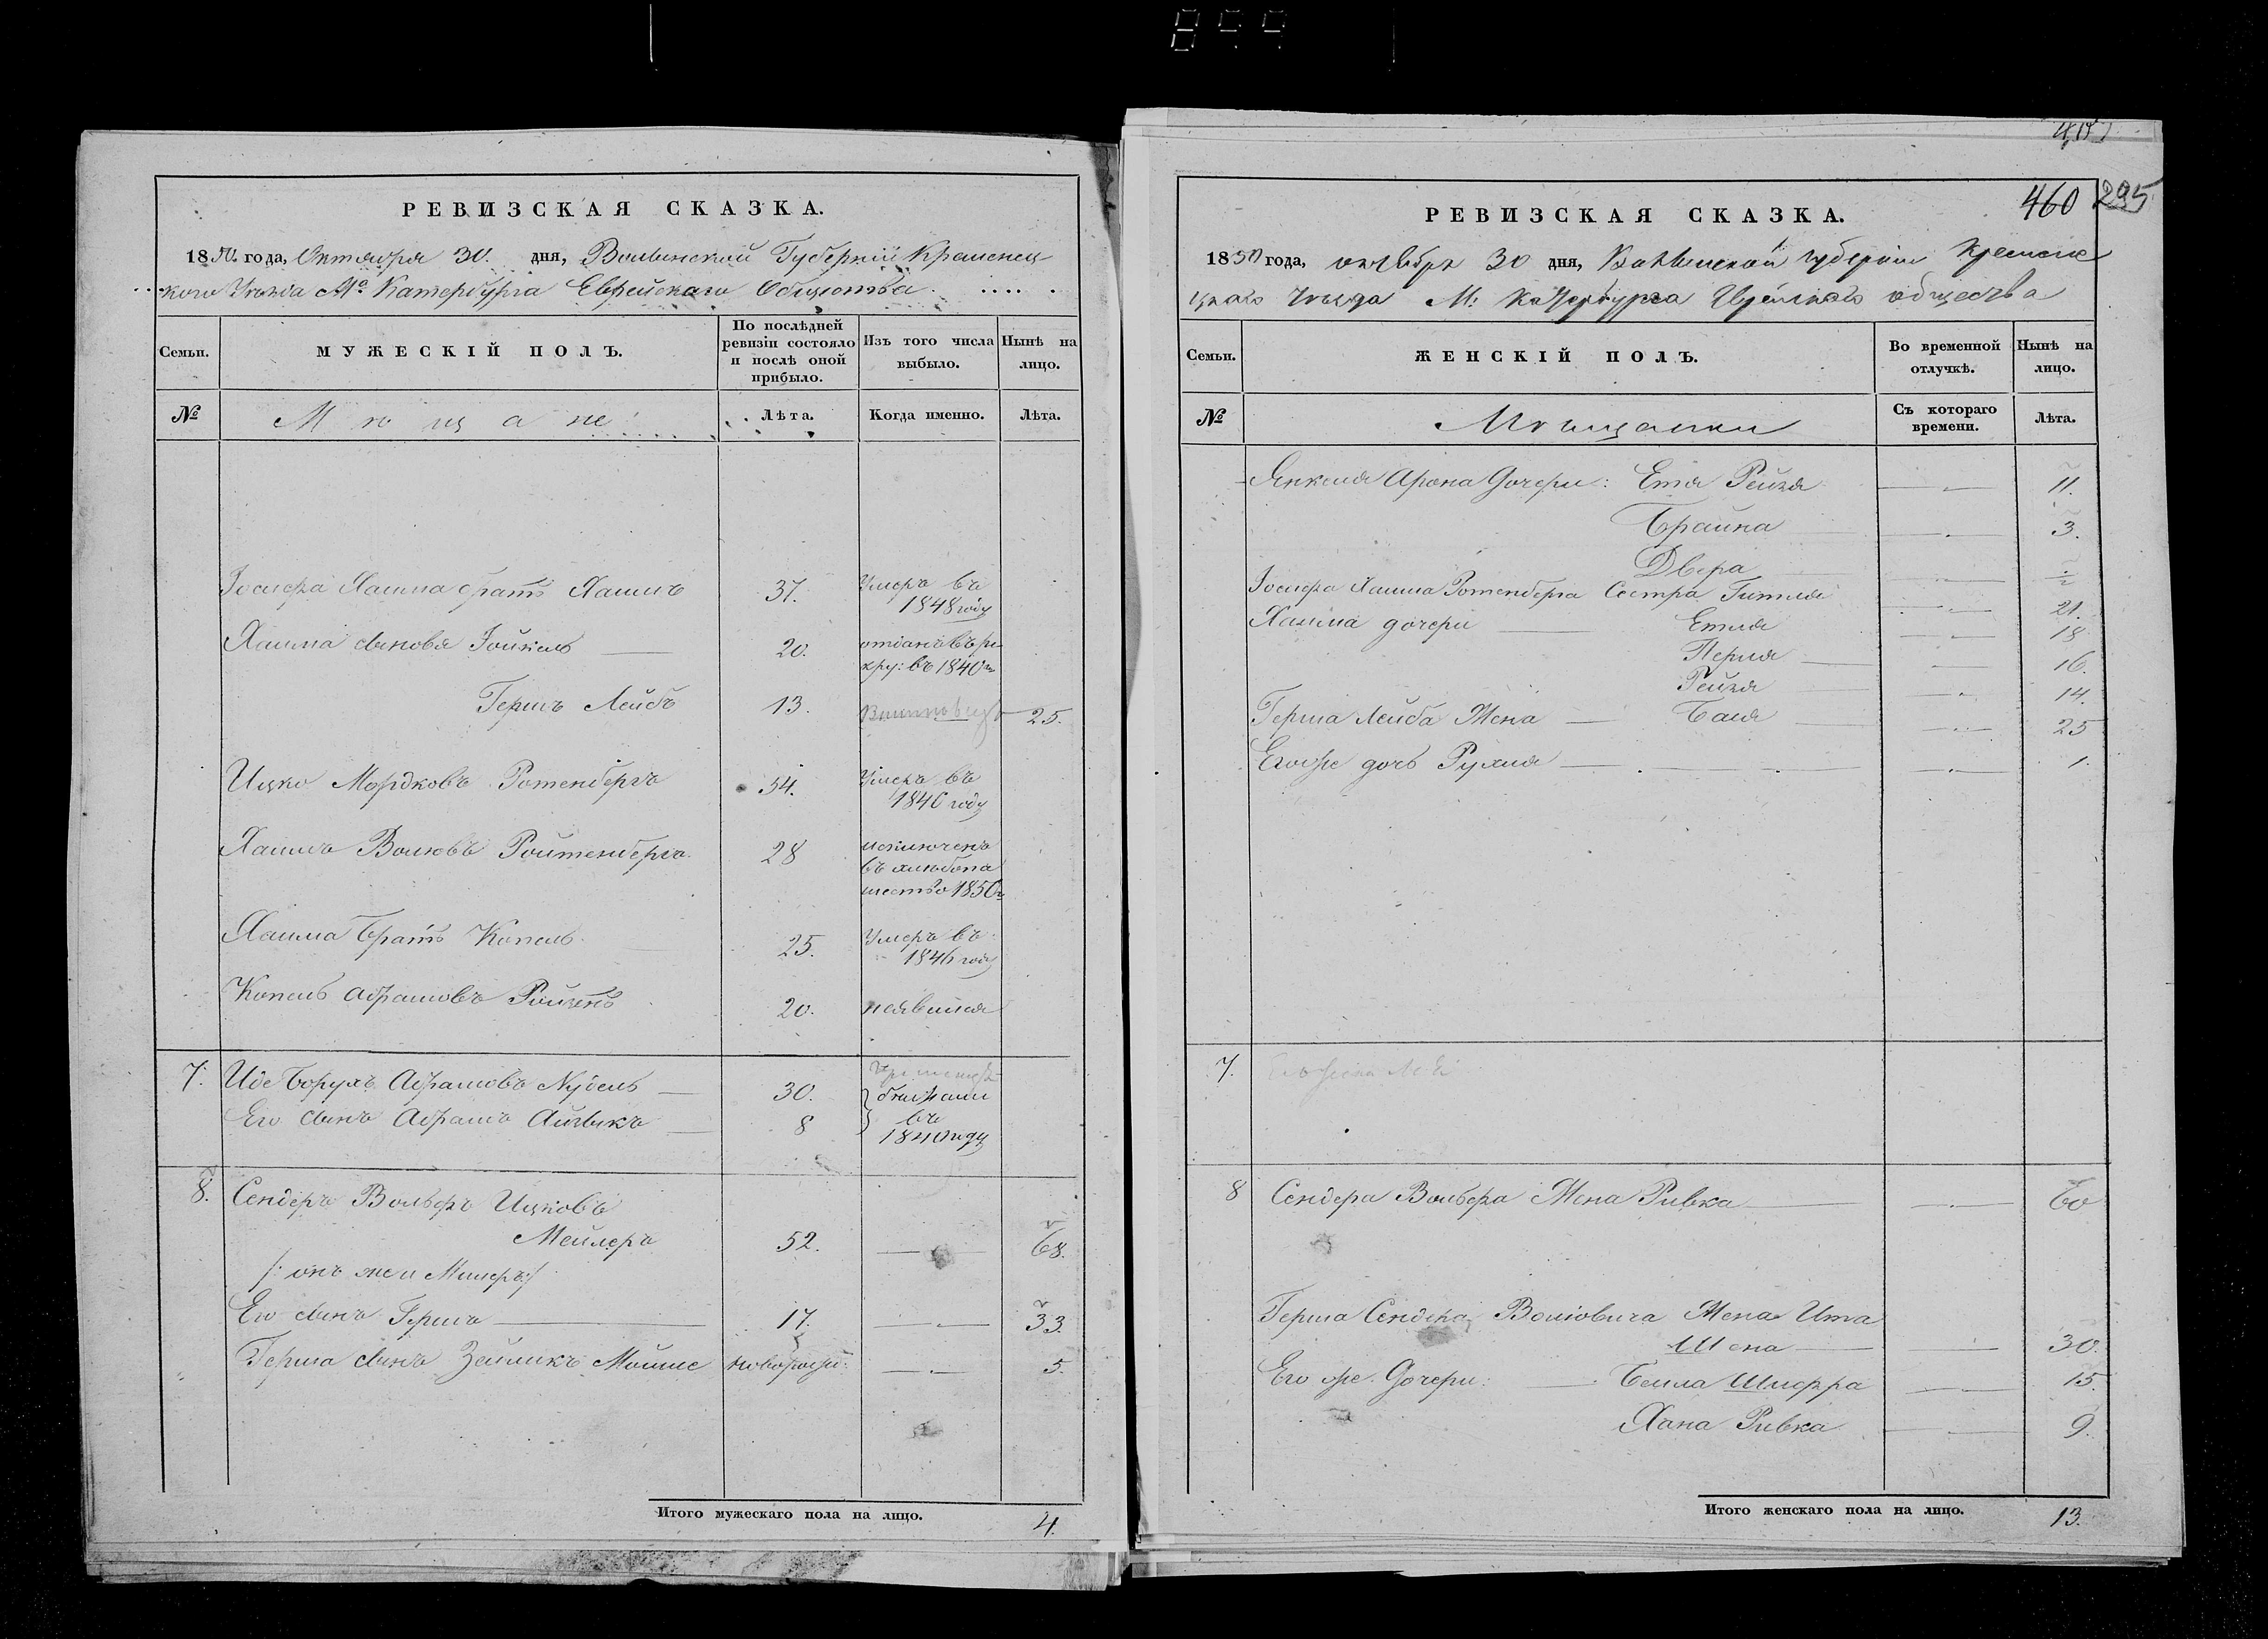 844
РЕВИЗСКАЯ СКАЗКА.
1850 года, Октября 30. дня, Волынской Губернии Кременец
кого Уезда Мᵃ Катербурга Еврейскаго Общества
Семьи.
МУЖЕСКІЙ ПОЛЪ.
По послѣдней ревизіи состояло и послѣ оной прибыло.
Изъ того числа выбыло.
Нынѣ на лицо.
№
Мѣщане
Лѣта.
Когда именно.
Лѣта.
Іосифа Хаима братъ Хаимъ 37. Умеръ въ 1848 году
Хаима сыновья Іойнель 20. отданъ въ ре-
кру: въ 1840 г.
Гершъ Лейбъ 13. 25.
Ицко Мордковъ Ротенбергъ 54. Умеръ въ 1846 году
Хаимъ Волковъ Ройтенбергъ 28 исключенъ
въ хлѣбопа
шество 1850 г
Хаима Братъ Копель 25. Умеръ въ 1846 году
Копель Абрамовъ Ройзенъ 20. неявился
7. Иде Борухъ Абрамовъ Нудель 30.
бѣжали
Его сынъ Абрамъ Айзыкъ 8 въ
1840 году
8. Сендеръ Вольфъ Ицковъ
Мейлеръ 52. 68.
/: онъ же и Миллеръ:/
Его сынъ Гершъ 17. 33.
Герша сынъ Зейликъ Мошис новорожд: 5.
Итого мужескаго пола на лицо. 4.
460 295
РЕВИЗСКАЯ СКАЗКА.
1850 года, октября 30 дня, Волынской губерніи Кремене
цкаго уѣзда М: Катербурга Еврейскаго общества
Семьи.
ЖЕНСКІЙ ПОЛЪ.
Во временной отлучкѣ.
Нынѣ на лицо.
№
Мѣщанки
Съ котораго времени.
Лѣта.
Янкеля Арона Дочери: Етя Рейзя 11.
Брайна 3.
Двера ½
Іосифа Хаима Ротенберга Сестра Гитля 21.
Хаима дочери Етля 18
Перля 16.
Рейзя 14.
Герша Лейба Жена Бася 25
Егоже дочь Рухля 1.
7.
8 Сендера Вольфа Жена Ривка 60
Герша Сендера Волковича Жена Ита
Шена 30.
Его же Дочери: Бейла Шифра 15.
Хана Ривка 9.
Итого женскаго пола на лицо. 13.